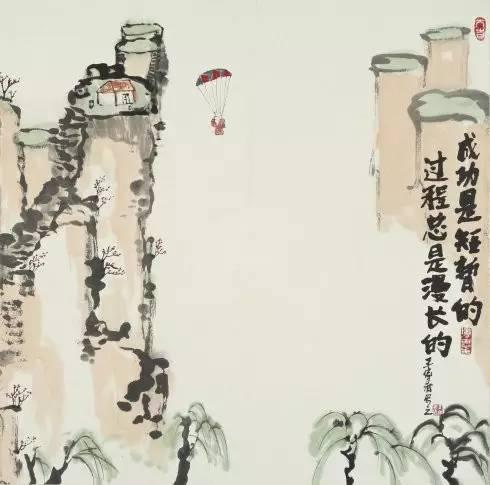 成功是短暂的
过程总是漫长的